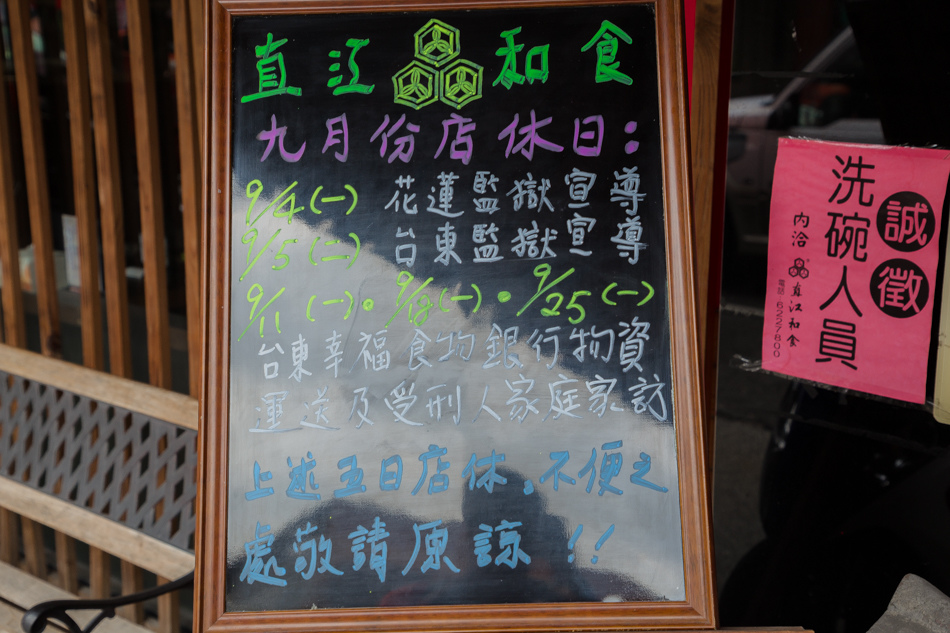 直江 和食
九月份店休日：
9/4(一) 花蓮監獄宣導
9/5(二) 台東監獄宣導
9/11(一)·9/18(一)·9/25(一)
台東幸福食物銀行物資
運送及受刑人家庭家訪
上述五日店休。不便之
處敬請原諒!!
誠徵
洗碗人員
內洽 直江和食
電話 6227800